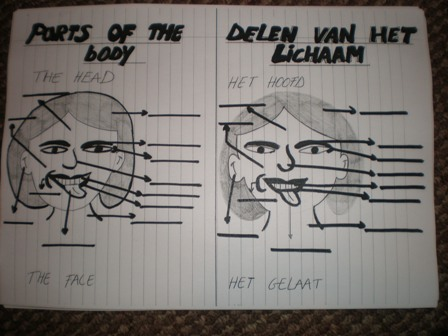 PARTS OF THE
body
THE HEAD
THE FACE
DELEN VAN HET
LICHAAM
HET HOOFD
HET GELAAT